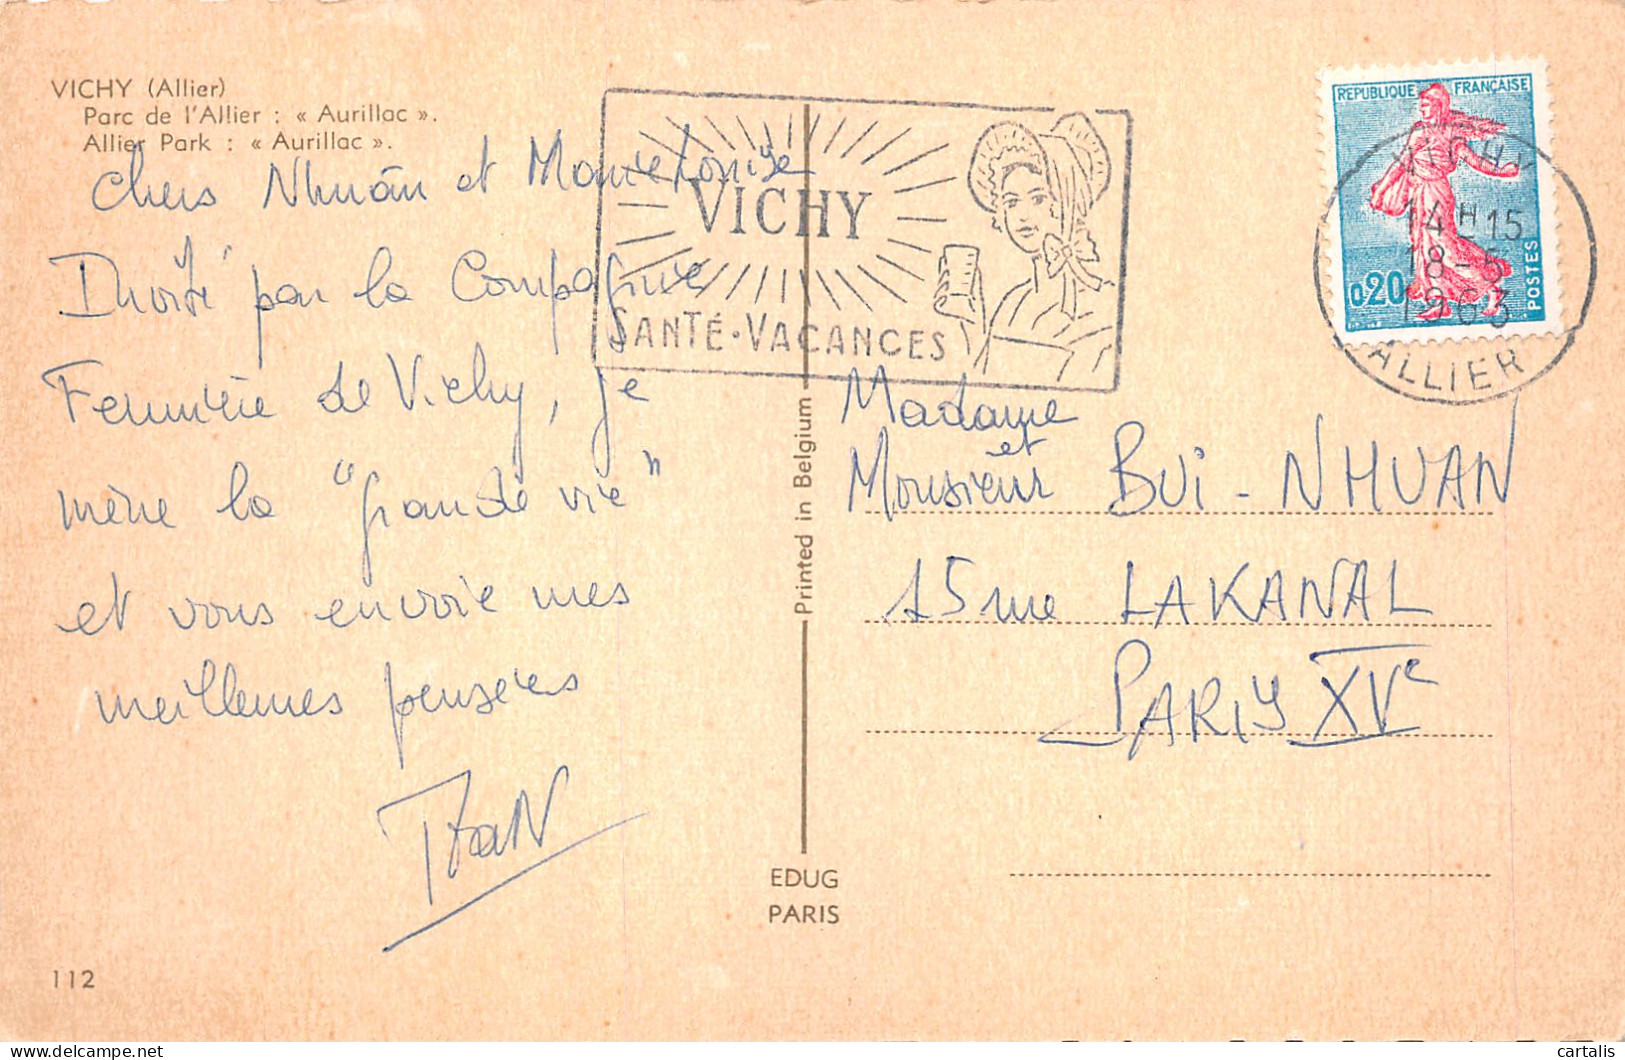 VICHY (Allier)
Parc de l'Allier : « Aurillac ».
Allier Park : « Aurillac ».
Chers Nhuân et Marie Louise
Invité par la Compagnie
Fermière de Vichy, je
mène la "grande vie"
et vous envoie mes
meilleures pensées
Tran
112
VICHY
SANTÉ-VACANCES
Printed in Belgium
EDUG
PARIS
REPUBLIQUE FRANÇAISE
0,20
POSTES
VICHY
14H15
18-5
1963
ALLIER
Madame
et
Monsieur BUI-NHUAN
15 rue LAKANAL
PARIS XVe
cartalis